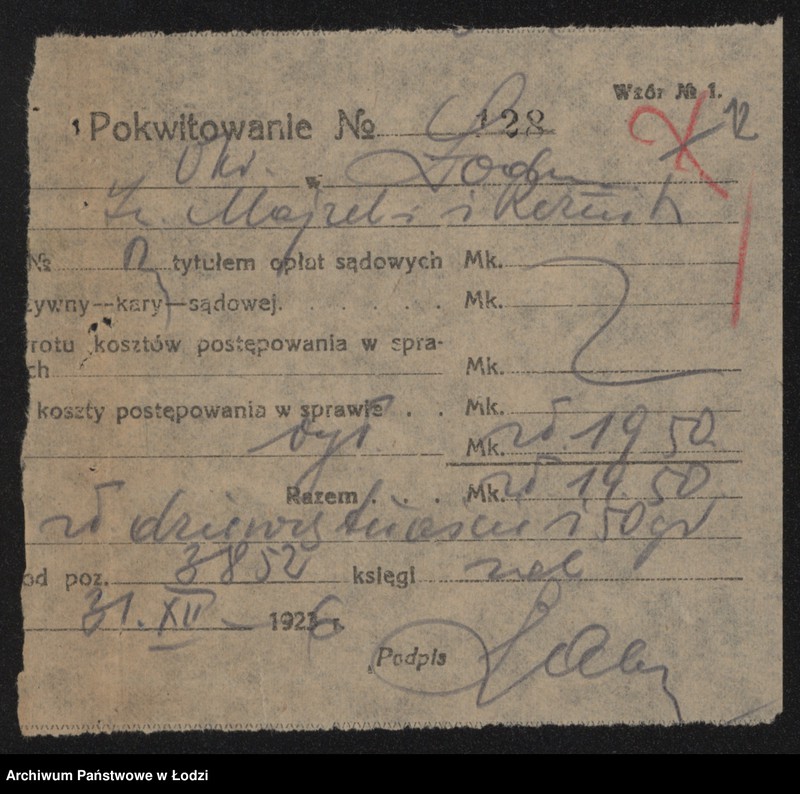 Wzór № 1.
Pokwitowanie № 128
12
Okr. w Łodzi
Majzels i
№ tytułem opłat sądowych Mk.
zywny--kary--sądowej. . . . . . . Mk.
rotu kosztów postępowania w spra-
ch Mk.
koszty postępowania w sprawie . . Mk.
Mk. zł. 19 50
Razem . . . Mk. zł 19.50
zł dziewiętnaście i 50 gr
od poz. 3852 księgi
31. XII – 1926 r.
Podpis
Archiwum Państwowe w Łodzi